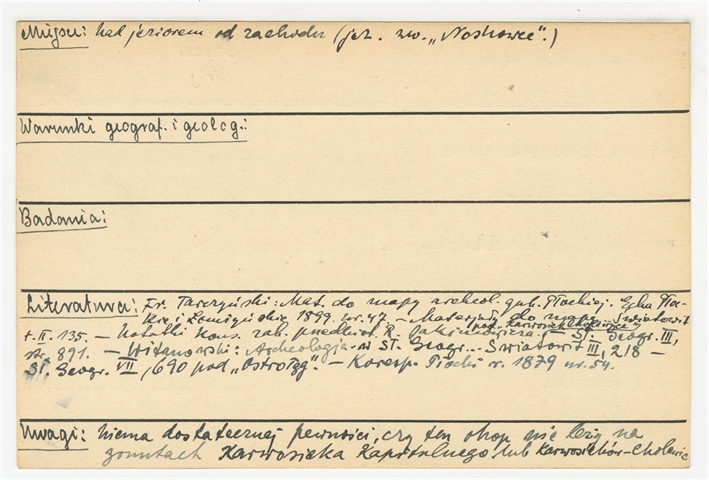 Miejsce: nad jeziorem od zachodu (jez. zw. „Noskowce”.)
Warunki geograf. i geolog.:
Badania:
Literatura: Fr. Tarczyński: Mat. do mapy archeol. gub. Płockiej. Echa Płoc-
kie i Łomżyńskie 1899. nr. 47 — Materjały do mapy Światowit
t. II. 135. — Notatki Kons. zab. przedhist. R. Jakimowicza. — Sł. Geogr. III,
pod „Karwosieki Cholewice”
str. 891. — Witanowski: Archeologja w Sł. Geogr. Światowit III, 218 —
Sł. Geogr. VII, 690 pod „Ostrołąg”. — Koresp. Płocki r. 1879 nr. 54.
Uwagi: niema dostatecznej pewności, czy ten okop nie leży na
gruntach Karwosieka Kapitulnego lub Karwosieków-Cholewic